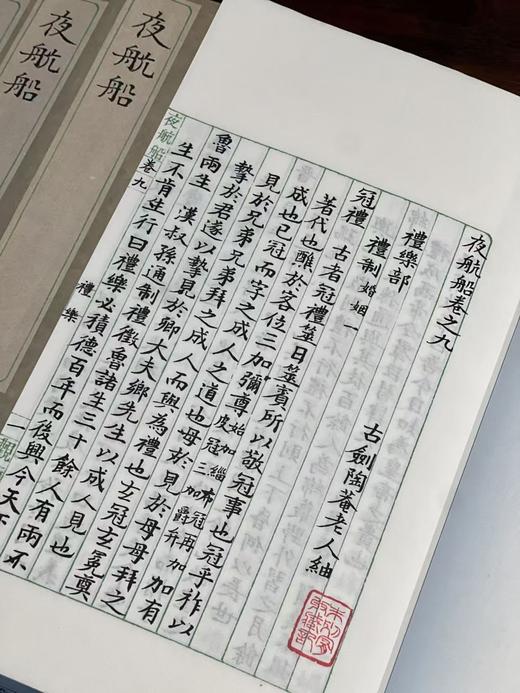 夜航船
夜航船
夜航船卷之九
古劍陶菴老人紬
禮樂部
禮制 婚姻一
冠禮 古者冠禮筮日筮賓所以敬冠事也冠乎阼以
著代也醮於客位三加彌尊始加緇布冠再加皮冠三加爵弁加有
成也已冠而字之成人之道也見於母母拜之
見於兄弟兄弟拜之成人而與為禮也玄冠玄冕奠
摯於君遂以摯見於卿大夫鄉先生以成人見也
魯兩生 漢叔孫通制禮徵魯諸生三十餘人有兩
生不肯行曰禮樂必積德百年而後興今天
夜航船 卷九 禮樂 一